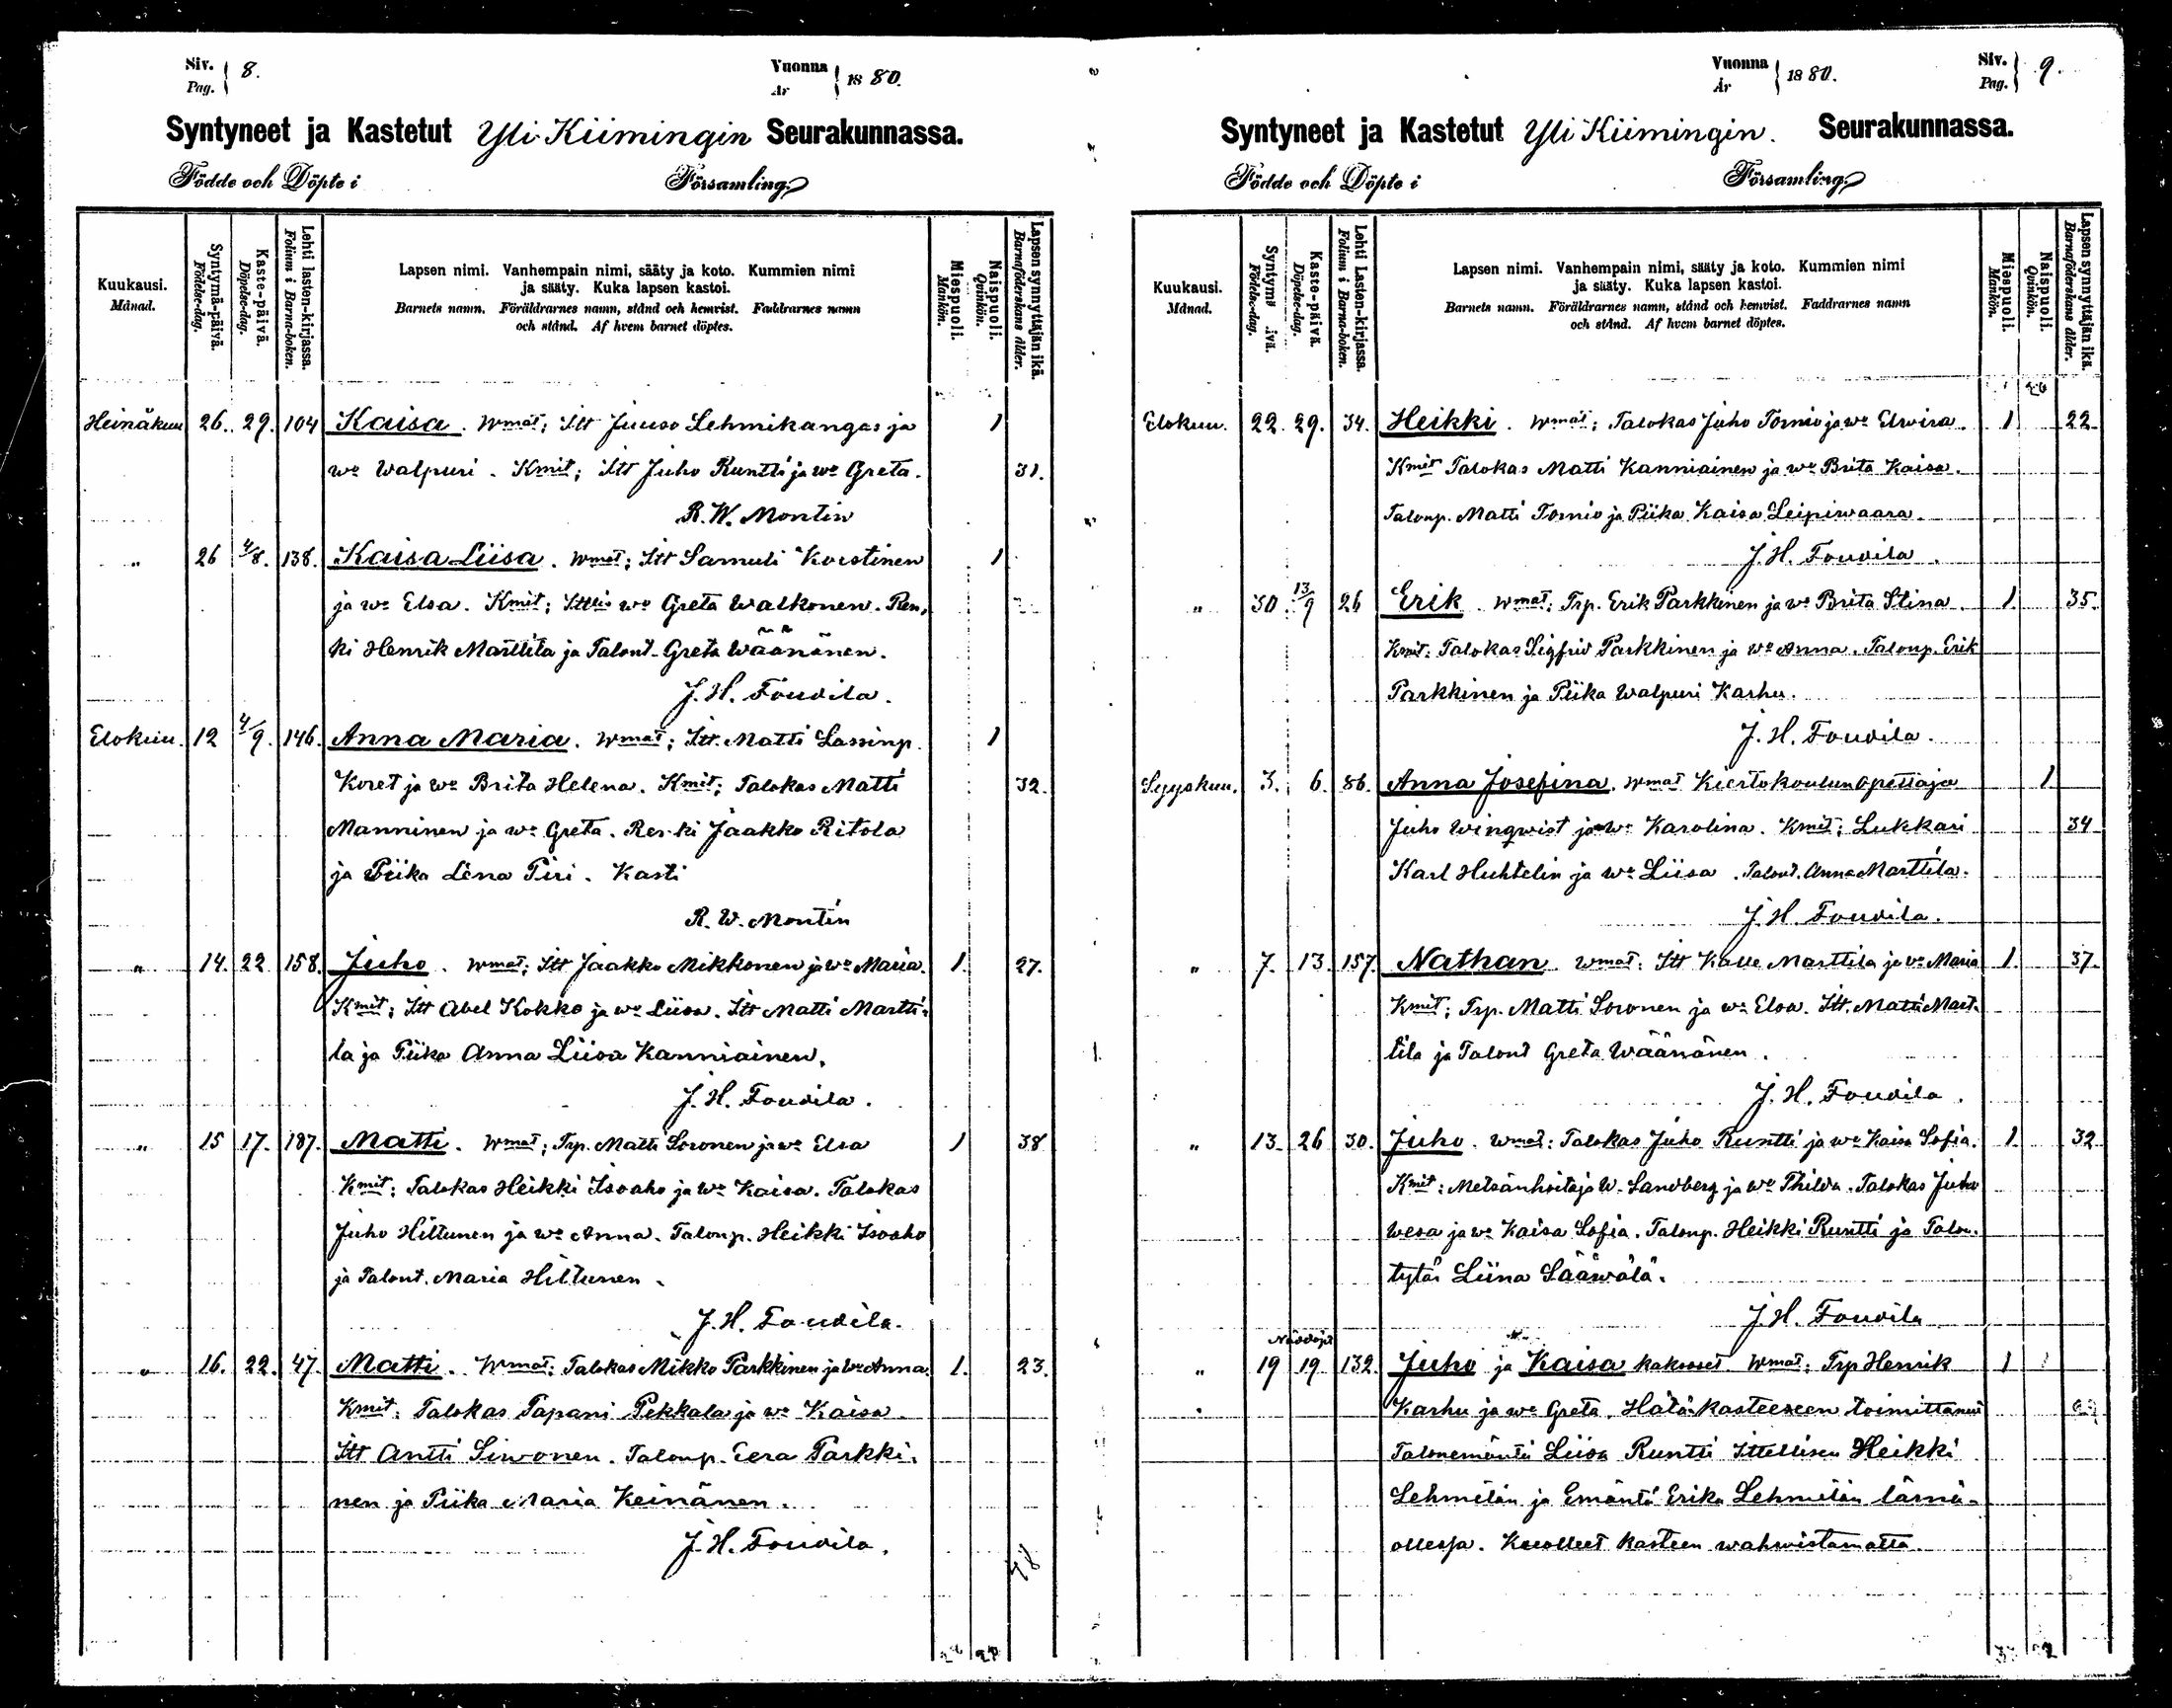 Siv. Pag. 8. Vuonna År 1880.
Syntyneet ja Kastetut Yli-Kiimingin Seurakunnassa.
Födde och Döpte i Församling.
Kuukausi. Månad.
Syntymä-päivä. Födelse-dag.
Kaste-päivä. Döpelse-dag.
Lehti lasten-kirjassa. Folium i Barna-boken.
Lapsen nimi. Vanhempain nimi, sääty ja koto. Kummien nimi
ja sääty. Kuka lapsen kastoi.
Barnets namn. Föräldrarnes namn, stånd och hemvist. Faddrarnes namn
och stånd. Af hvem barnet döptes.
Miespuoli. Mankön.
Naispuoli. Qvinkön.
Lapsen synnyttäjän ikä. Barnaföderskans ålder.
Heinäkuu 26. 29. 104 Kaisa. Wmat; Itt Juuso Lehmikangas ja 1
wo Walpuri. Kmit; Itt Juho Runtti ja wo Greta. 31.
R. W. Montin
" 26 4/8. 138. Kaisa Liisa. Wmat; Itt Samuli Koistinen 1
ja wo Elsa. Kmit; Ittlis wo Greta Walkonen. Ren,
ki Henrik Marttila ja Talont. Greta Wäänänen.
J. H. Toudila.
Elokuu. 12 4/9. 146. Anna Maria. Wmat; Itt. Matti Lassinp. 1
Koret ja wo Brita Helena. Kmit; Talokas Matti 32.
Manninen ja wo Greta. Renki Jaakko Ritola
ja Piika Lena Piri. Kasti
R. W. Montin
" 14. 22 158. Juho. Wmat; Itt Jaakko Mikkonen ja wo Maria. 1. 27.
Kmit; Itt Abel Kokko ja wo Liisa. Itt Matti Martti-
la ja Piika Anna Liisa Kanniainen.
J. H. Toudila.
" 15 17. 187. Matti. Wmat; Trp. Matti Soronen ja wo Elsa 1 38
Kmit; Talokas Heikki Isoaho ja wo Kaisa. Talokas
Juho Hiltunen ja wo Anna. Talonp. Heikki Isoaho
ja Talont. Maria Hiltunen.
J. H. Toudila.
" 16. 22. 47. Matti. Wmat; Talokas Mikko Parkkinen ja wo Anna. 1. 23.
Kmit; Talokas Tapani Pekkala ja wo Kaisa.
Itt Antti Siwonen. Talonp. Eera Parkki-
nen ja Piika Maria Keinänen.
J. H. Toudila.
Vuonna År 1880. Siv. Pag. 9.
Syntyneet ja Kastetut Yli Kiimingin. Seurakunnassa.
Födde och Döpte i Församling.
Kuukausi. Månad.
Syntymä ivä. Födelse-dag.
Kaste-päivä. Döpelse-dag.
Lehti Lasten-kirjassa. Folium i Barna-boken.
Lapsen nimi. Vanhempain nimi, sääty ja koto. Kummien nimi
ja sääty. Kuka lapsen kastoi.
Barnets namn. Föräldrarnes namn, stånd och hemvist. Faddrarnes namn
och stånd. Af hvem barnet döptes.
Miespuoli. Mankön.
Naispuoli. Qvinkön.
Lapsen synnyttäjän ikä. Barnaföderskans ålder.
Elokuu. 22. 29. 34. Heikki. Wmat; Talokas Juho Tornio ja wo Elwira. 1 22.
Kmit Talokas Matti Kanniainen ja wo Brita Kaisa.
Talonp. Matti Tornio ja Piika Kaisa Leipiwaara.
J. H. Toudila.
" 30. 13/9 26 Erik. Wmat; Trp. Erik Parkkinen ja wo Brita Stina. 1. 35.
Kmit; Talokas Sigfrid Parkkinen ja wo Anna. Talonp. Erik
Parkkinen ja Piika Walpuri Karhu.
J. H. Toudila.
Syyskuu. 3. 6. 86. Anna Josefina. Wmat Kiertokoulun opettaja 1.
Juho Winqwist ja wo Karolina. Kmit; Lukkari 34
Karl Huhtelin ja wo Liisa. Talont. Anna Marttila.
J. H. Toudila.
" 7. 13. 157. Nathan. Wmat; Itt Kalle Marttila ja wo Maria 1. 37.
Kmit; Trp. Matti Soronen ja wo Elsa. Itt. Matti Mart-
tila ja Talont Greta Wäänänen.
J. H. Toudila.
" 13. 26 30. Juho. Wmat; Talokas Juho Runtti ja wo Kaisa Sofia. 1. 32
Kmit; Metsänhoitaja W. Sandberg ja wo Thilda. Talokas Juho
Wesa ja wo Kaisa Sofia. Talonp. Heikki Runtti ja Talon-
tytär Liina Sääwälä.
J. H. Toudila
" 19 19. 132. Juho ja Kaisa kaksoset. Wmat; Trp Henrik 1 1
Karhu ja wo Greta. Hätäkasteeseen toimittanut
Talonemäntä Liisa Runtti Ittellisen Heikki
Lehmilän ja Emäntä Erika Lehmilän läsnä-
ollessa. Kuolleet kasteen wahwistamatta.